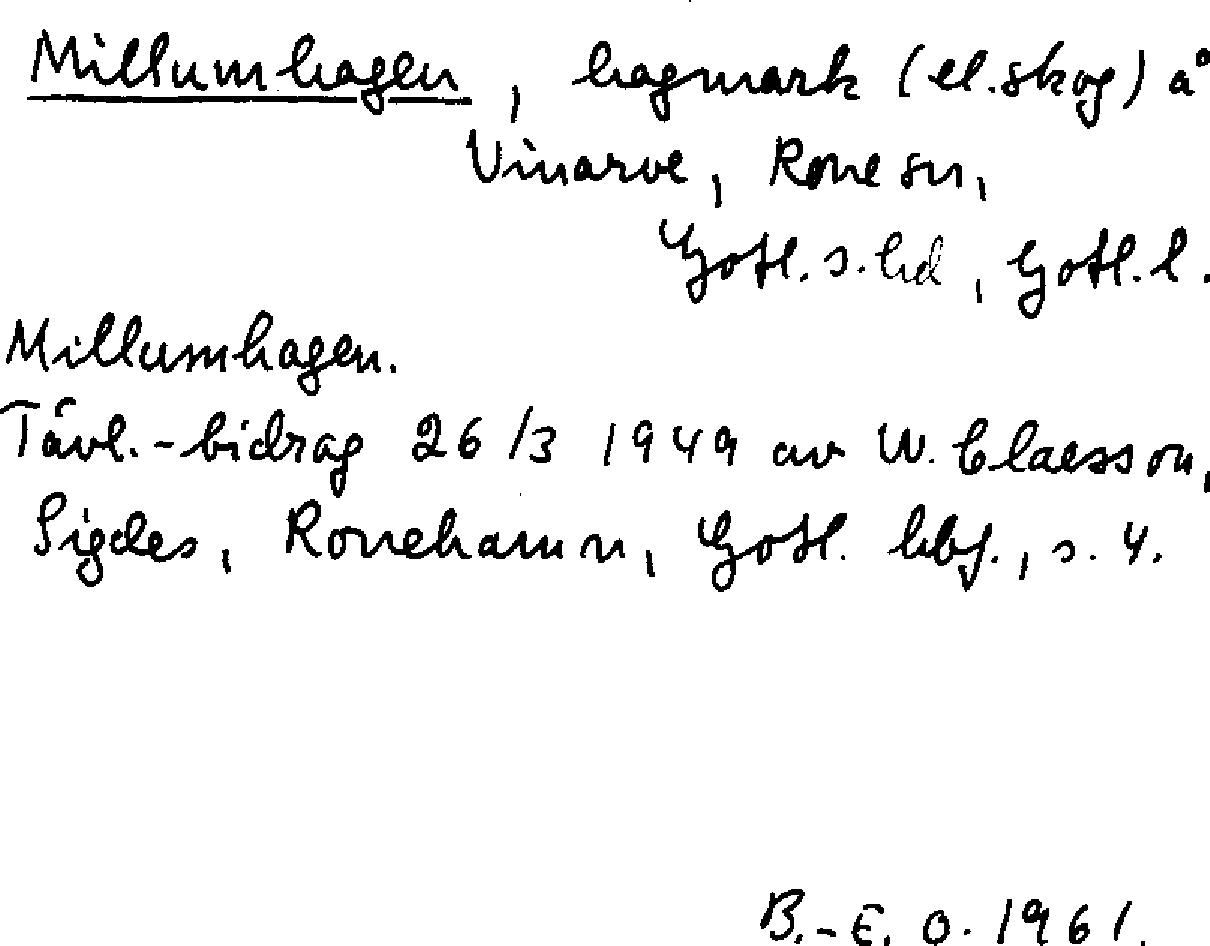 Millumhagen, hagmark (el. skog) å
Vinarve, Rone sn,
Gotl. s. hd, Gotl. l.
Millumhagen.
Tävl.-bidrag 26/3 1949 av W. Claesson,
Sigdes, Ronehamn, Gotl. hbf., s. 4.
B.-E. O. 1961.